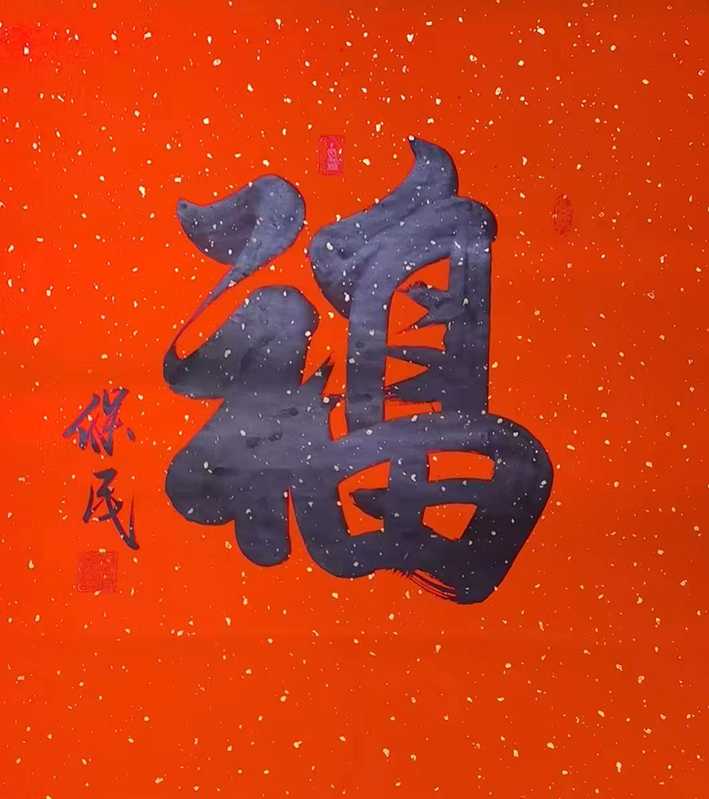 福
保民